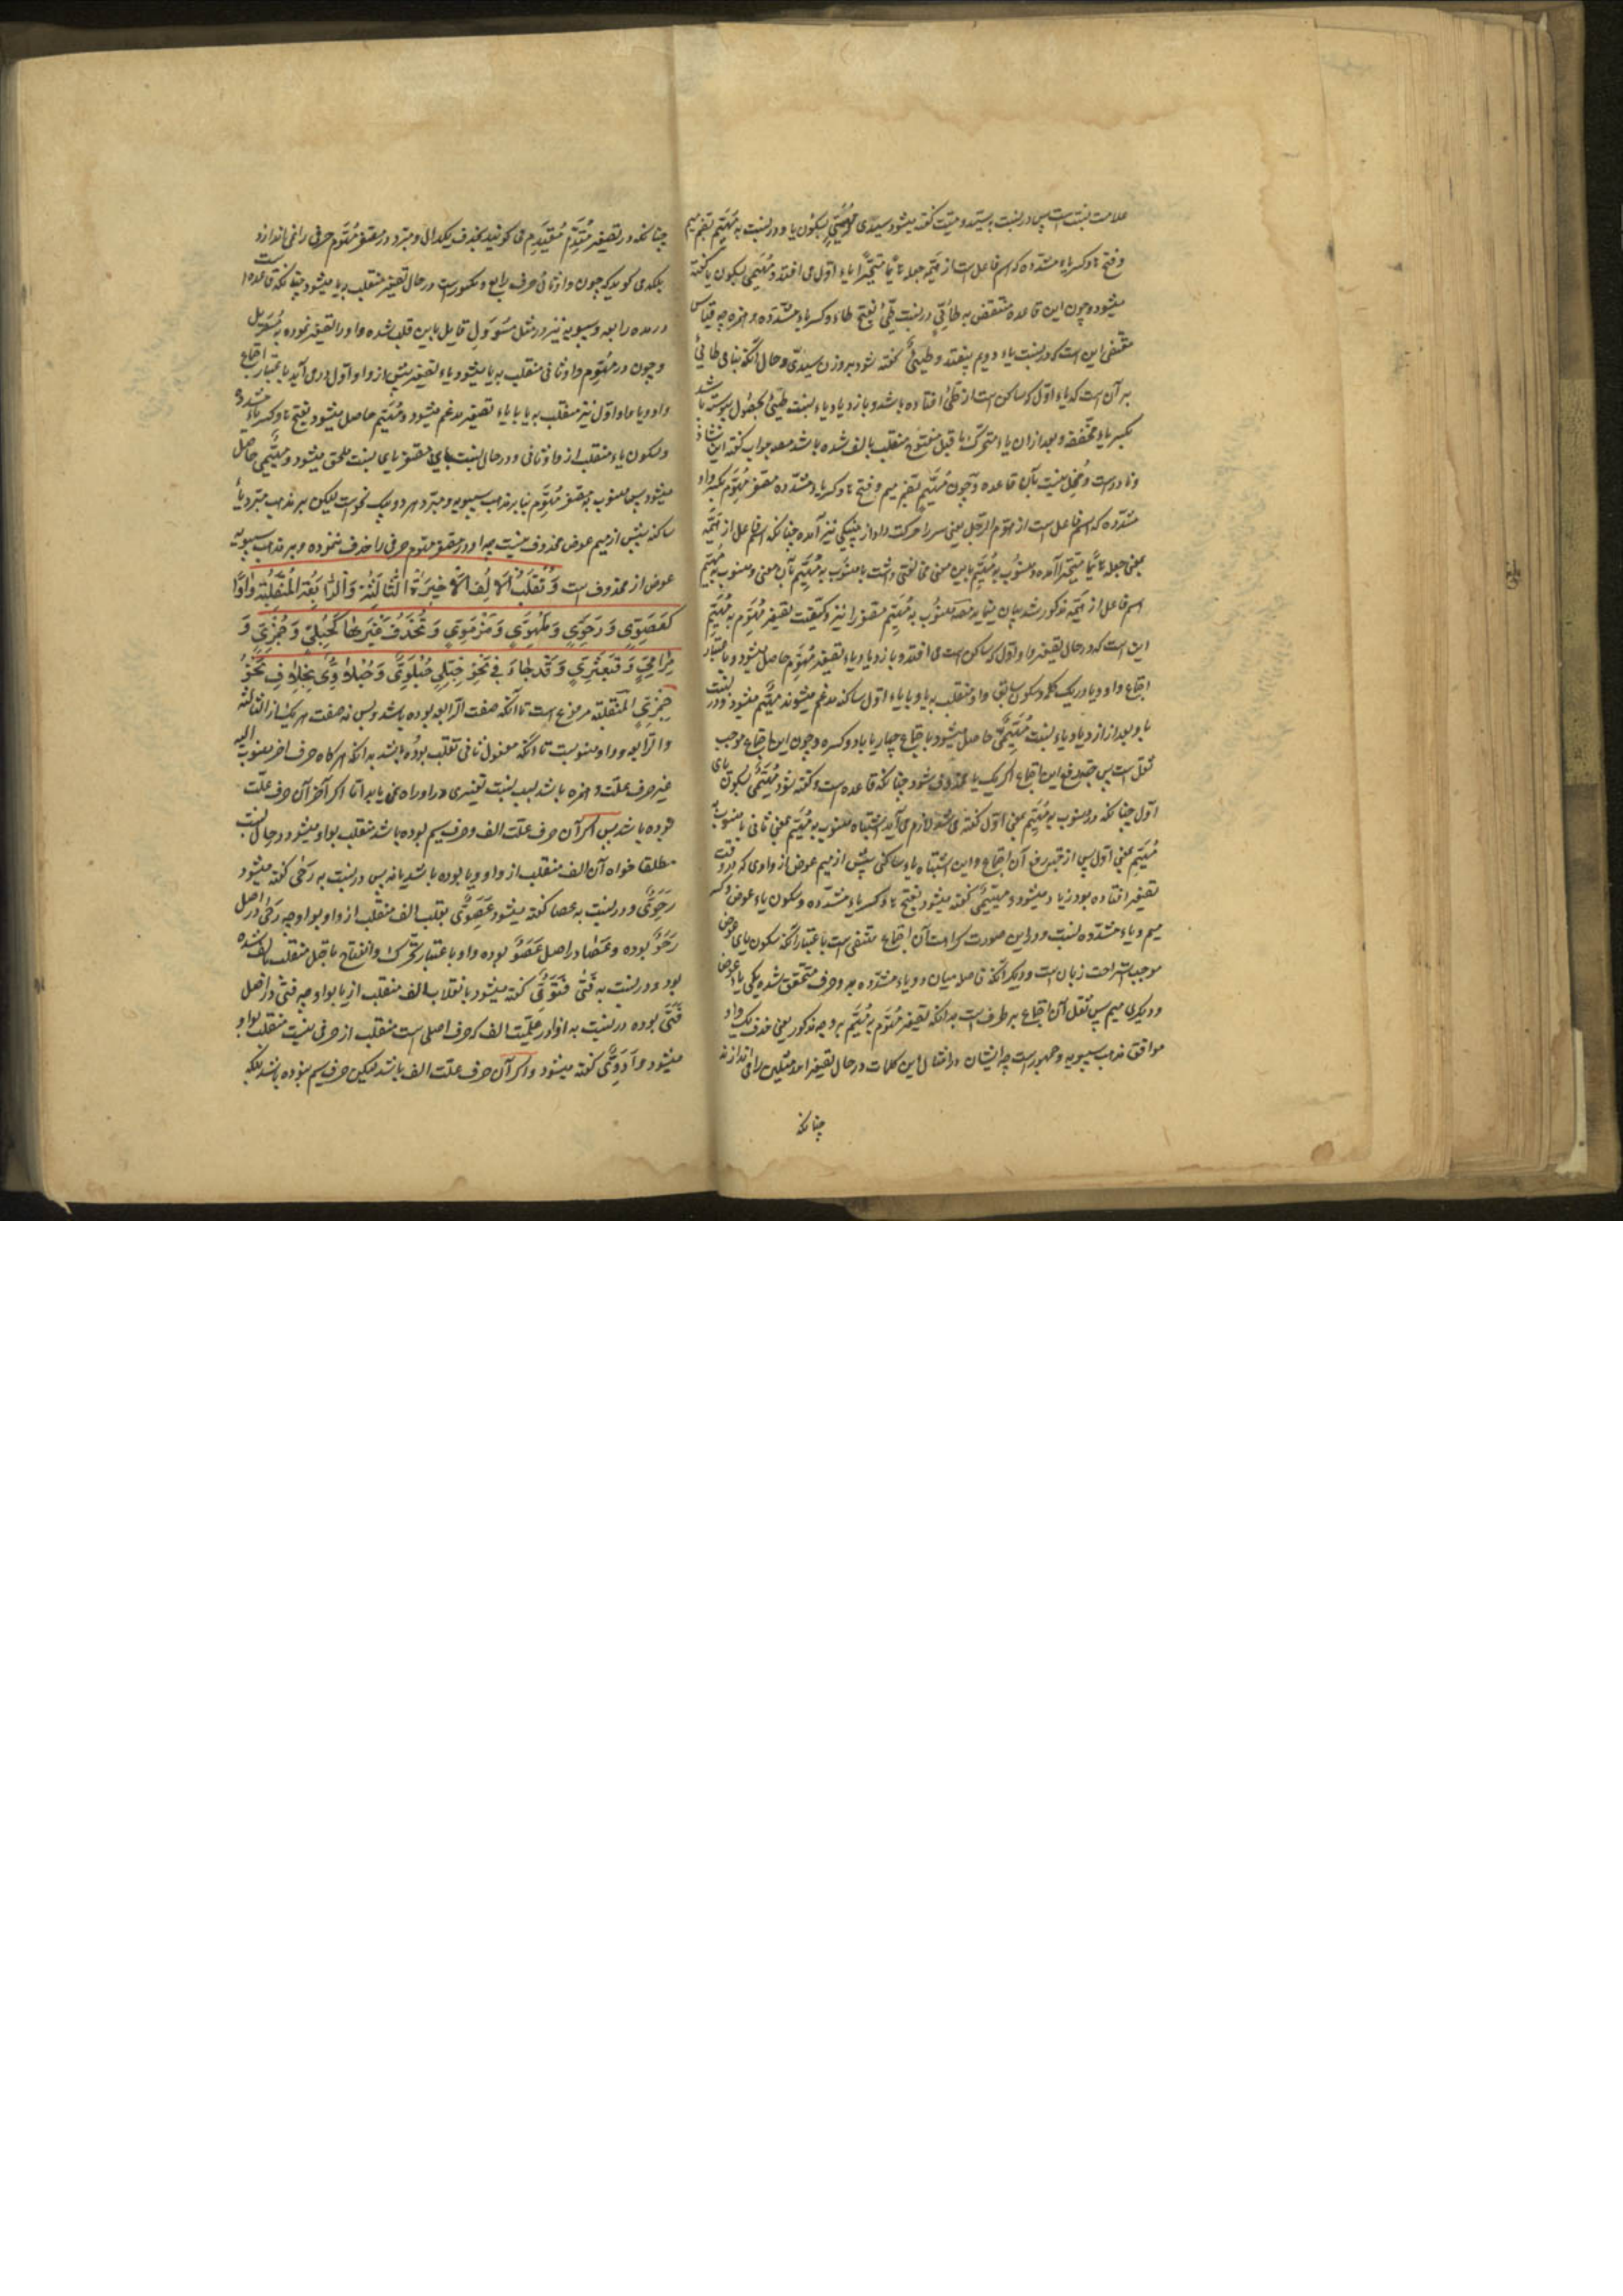 علامت نسبت است پس در نسبت بسید و میت گفته میشود سیدی و میتی بسکون یا و در نسبت به مهیم بضم میم
و فتح ها و کسر یاء مشدده که اسم فاعل است از هیمه جعله هائما متحیرا یاء اول می افتد و مهیمی بسکون یا گفته
میشود و چون این قاعده منتقض به طائی در نسبت طیئ بفتح طاء و کسر یاء مشدده و همزه چه قیاس
مقتضی این است که در نسبت یاء دویم بیفتد و طیئی گفته شود بر وزن سیدی و حال آنکه بنای طائی
بر آن است که یاء اول که ساکن است از طیئ افتاده باشد و بازدیاد یاء نسبت طیئی حصول پیوسته باشد
بکسر یاء مخففه و بعد از آن یاء متحرک ما قبل مفتوح منقلب بالف شده باشد مصه بجواب گفته این شاذ
و نادر است و مخل نیست بآن قاعده و چون مهییم بضم میم و فتح ها و کسر یاء مشدده مصغر مهوم بکسر واو
مشدده که اسم فاعل است از هوم الرجل یعنی سر را حرکت داد از پینکی نیز آمده چنانکه اسم فاعل از هیمه
بمعنی جعله هائما متحیرا آمده و منسوب به مهیم باین معنی مخالفتی داشت با منسوب به مهیم بآن معنی و منسوب به مهیم
اسم فاعل از هیمه مذکور شد بیان مینماید مصه منسوب به مهیم مصغر را نیز و کیفیت تصغیر مهوم به مهیم
این است که در حال تصغیر واو اول که ساکن است می افتد و بازدیاد یاء تصغیر مهیوم حاصل میشود و باعتبار
اجتماع واو و یا در یک کلمه و سکون سابق واو منقلب به یا و یا با یاء اول ساکنه مدغم میشوند مهیم میشود و در نسبت
با و بعد از ازدیاد یاء نسبت مهیمی حاصل میشود با اجتماع چهار یا با دو کسره و چون این اجتماع موجب
ثقل است پس جهة رفع این اجتماع اگر یک یا محذوف شود چنانکه قاعده است و گفته شود مهیمی بسکون یای
اول چنانکه در منسوب به مهیم بمعنی اول گفته می شد لازم می آید اشتباه منسوب به مهیم بمعنی ثانی با منسوب به
مهیم بمعنی اول پس از جهت رفع آن اجتماع و این اشتباه یاء ساکنی پیش از میم عوض از واوی که در وقت
تصغیر افتاده بود زیاد میشود و مهییمی گفته میشود بفتح ها و کسر یاء مشدده و سکون یاء عوض و کسر
میم و یاء مشدده نسبت و در این صورت کراهت آن اجتماع منتفی است باعتبار آنکه سکون یای عوض
موجب استراحت زبان است و دیگر آنکه فاصله میان دو یاء مشدده به دو حرف متحقق شده یکی یاء عوض
و دیگری میم پس ثقل آن اجتماع بر طرف است بدانکه تصغیر مهوم بر مهیم بر وجه مذکور یعنی حذف یک واو
موافق مذهب سیبویه و جمهور است چه ایشان در امثال این کلمات در حال تصغیر احد مثلین را می اندازند
چنانکه
چنانکه در تصغیر مقدم مقیدم می گویند بحذف یکدال و مبرد در مصغر مهوم حرفی را نمی اندازد
بلکه می گوید که چون واو ثانی حرف رابع و مکسور است در حال تصغیر منقلب بیا میشود چنانکه قاعده است
در مده رابعه و سیبویه نیز در مثل مسوول قایل باین قلب شده و او را تصغیر نموده به مسیئیل
و چون در مهیوم واو ثانی منقلب به یا میشود یاء تصغیر پیش از واو اول در می آید باعتبار اجتماع
واو و یا واو اول نیز منقلب به یا با یاء تصغیر مدغم میشود و مهییم حاصل میشود بفتح ها و کسر یاء مشدده
و سکون یاء منقلب از واو ثانی و در حال نسبت یای مصغر یای نسبت ملحق میشود و مهییمی حاصل
میشود پس منسوب به مصغر مهوم بنابر مذهب سیبویه و مبرد هر دو بیک نحو است لیکن بر مذهب مبرد یاء
ساکنه پیش از میم عوض محذوف نیست چه او در مصغر مهوم حرفی را حذف ننموده و بر مذهب سیبویه
عوض از محذوف است و تقلب الالف الاخیرة الثالثة و الرابعة المنقلبة واوا
کعصوی و رحوی و ملهوی و مرموی و تحذف غیرها کحبلی و جمزی و
مرامی و قبعثری و قد جاء فی نحو حبلی حبلوی و حبلاوی بخلاف نحو
جمزی المنقلبة مرفوع است تا آنکه صفت الرابعه بوده باشد و بس نه صفت هر یک از الثالثه
و الرابعه و واوا منصوبست تا آنکه مفعول ثانی تقلب بوده باشد بدانکه هرگاه حرف اخر منسوب الیه
غیر حرف علت و همزه باشد بسبب نسبت تغییری در او راه نمی یابد اما اگر آخر آن حرف علت
بوده باشد پس اگر آن حرف علت الف و حرف سیم بوده باشد منقلب بواو میشود در حال نسبت
مطلقا خواه آن الف منقلب از واو و یا بوده باشد یا نه پس در نسبت به رحی گفته میشود
رحوی و در نسبت به عصا گفته میشود عصوی بقلب الف منقلب از واو بواو چه رحی در اصل
رحو بوده و عصا در اصل عصو بوده واو باعتبار تحرک و انفتاح ما قبل منقلب بالف شده
بود و در نسبت به فتی فتوی گفته میشود بانقلاب الف منقلب از یا بواو چه فتی در اصل
فتی بوده در نسبت به اذا در علمیت الف که حرف اصلی است منقلب از حرفی نیست منقلب بواو
میشود و اذوی گفته میشود و اگر آن حرف علت الف باشد لیکن حرف سیم نبوده باشد بلکه